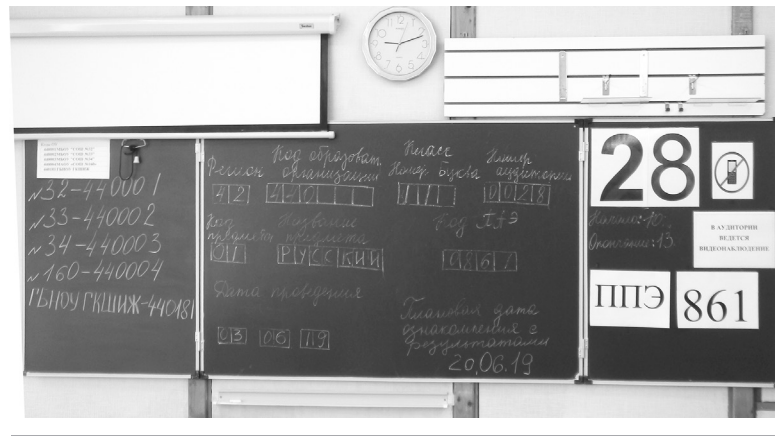 N32-440001
N33-440002
N34-440003
N160-440004
ГБНОУ ГКШИЖ-440181
Регион
Код образоват. организации
Класс
Номер буква
Номер аудитории
42
44-0
11
0028
Код предмета
Название предмета
Код ППЭ
01
РУССКИЙ
0861
Дата проведения
03 06 19
Плановая дата
ознакомления с
результатами
20.06.19
28
Начало: 10
Окончание: 13
В АУДИТОРИИ
ВЕДЕТСЯ
ВИДЕОНАБЛЮДЕНИЕ
ППЭ
861